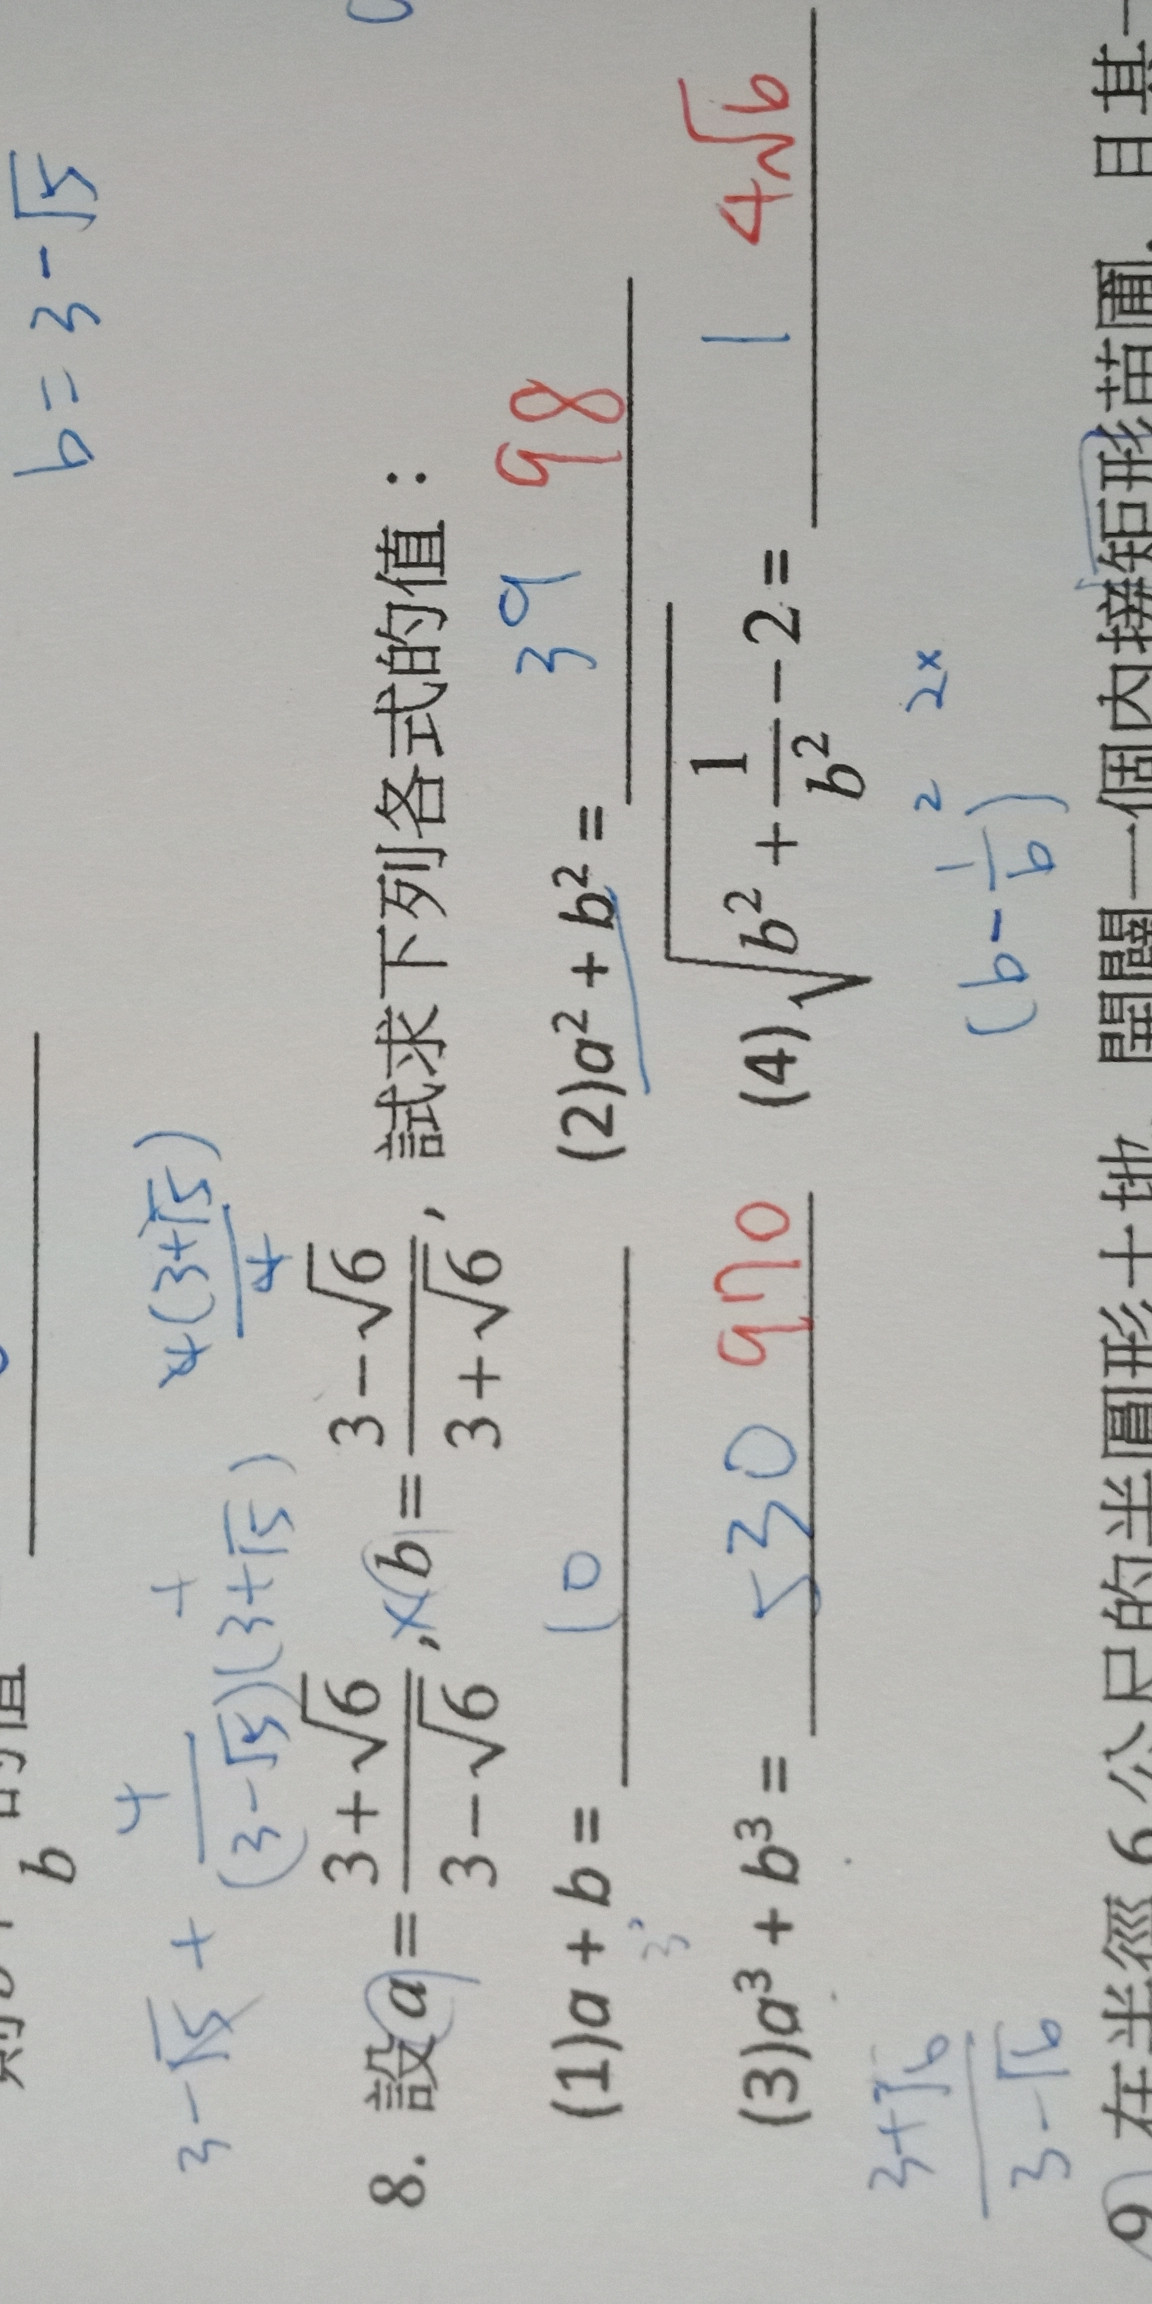 b = 3 - √5
b 的值
3 - √5 + 4/((3 - √5)(3 + √5)) + 4(3+√5)/4
8. 設 a = (3 + √6)/(3 - √6), x b = (3 - √6)/(3 + √6), 試求下列各式的值：
(1) a + b = 10 (2) a² + b² = 39 98
(3) a³ + b³ = 530 970 (4) √(b² + 1/b² - 2) = 1 4√6
(b - 1/b)² 2x
(3+√6)/(3-√6)
9 在半徑 6 公尺的半圓形土地，開闢一個內接矩形苗圃，且其一